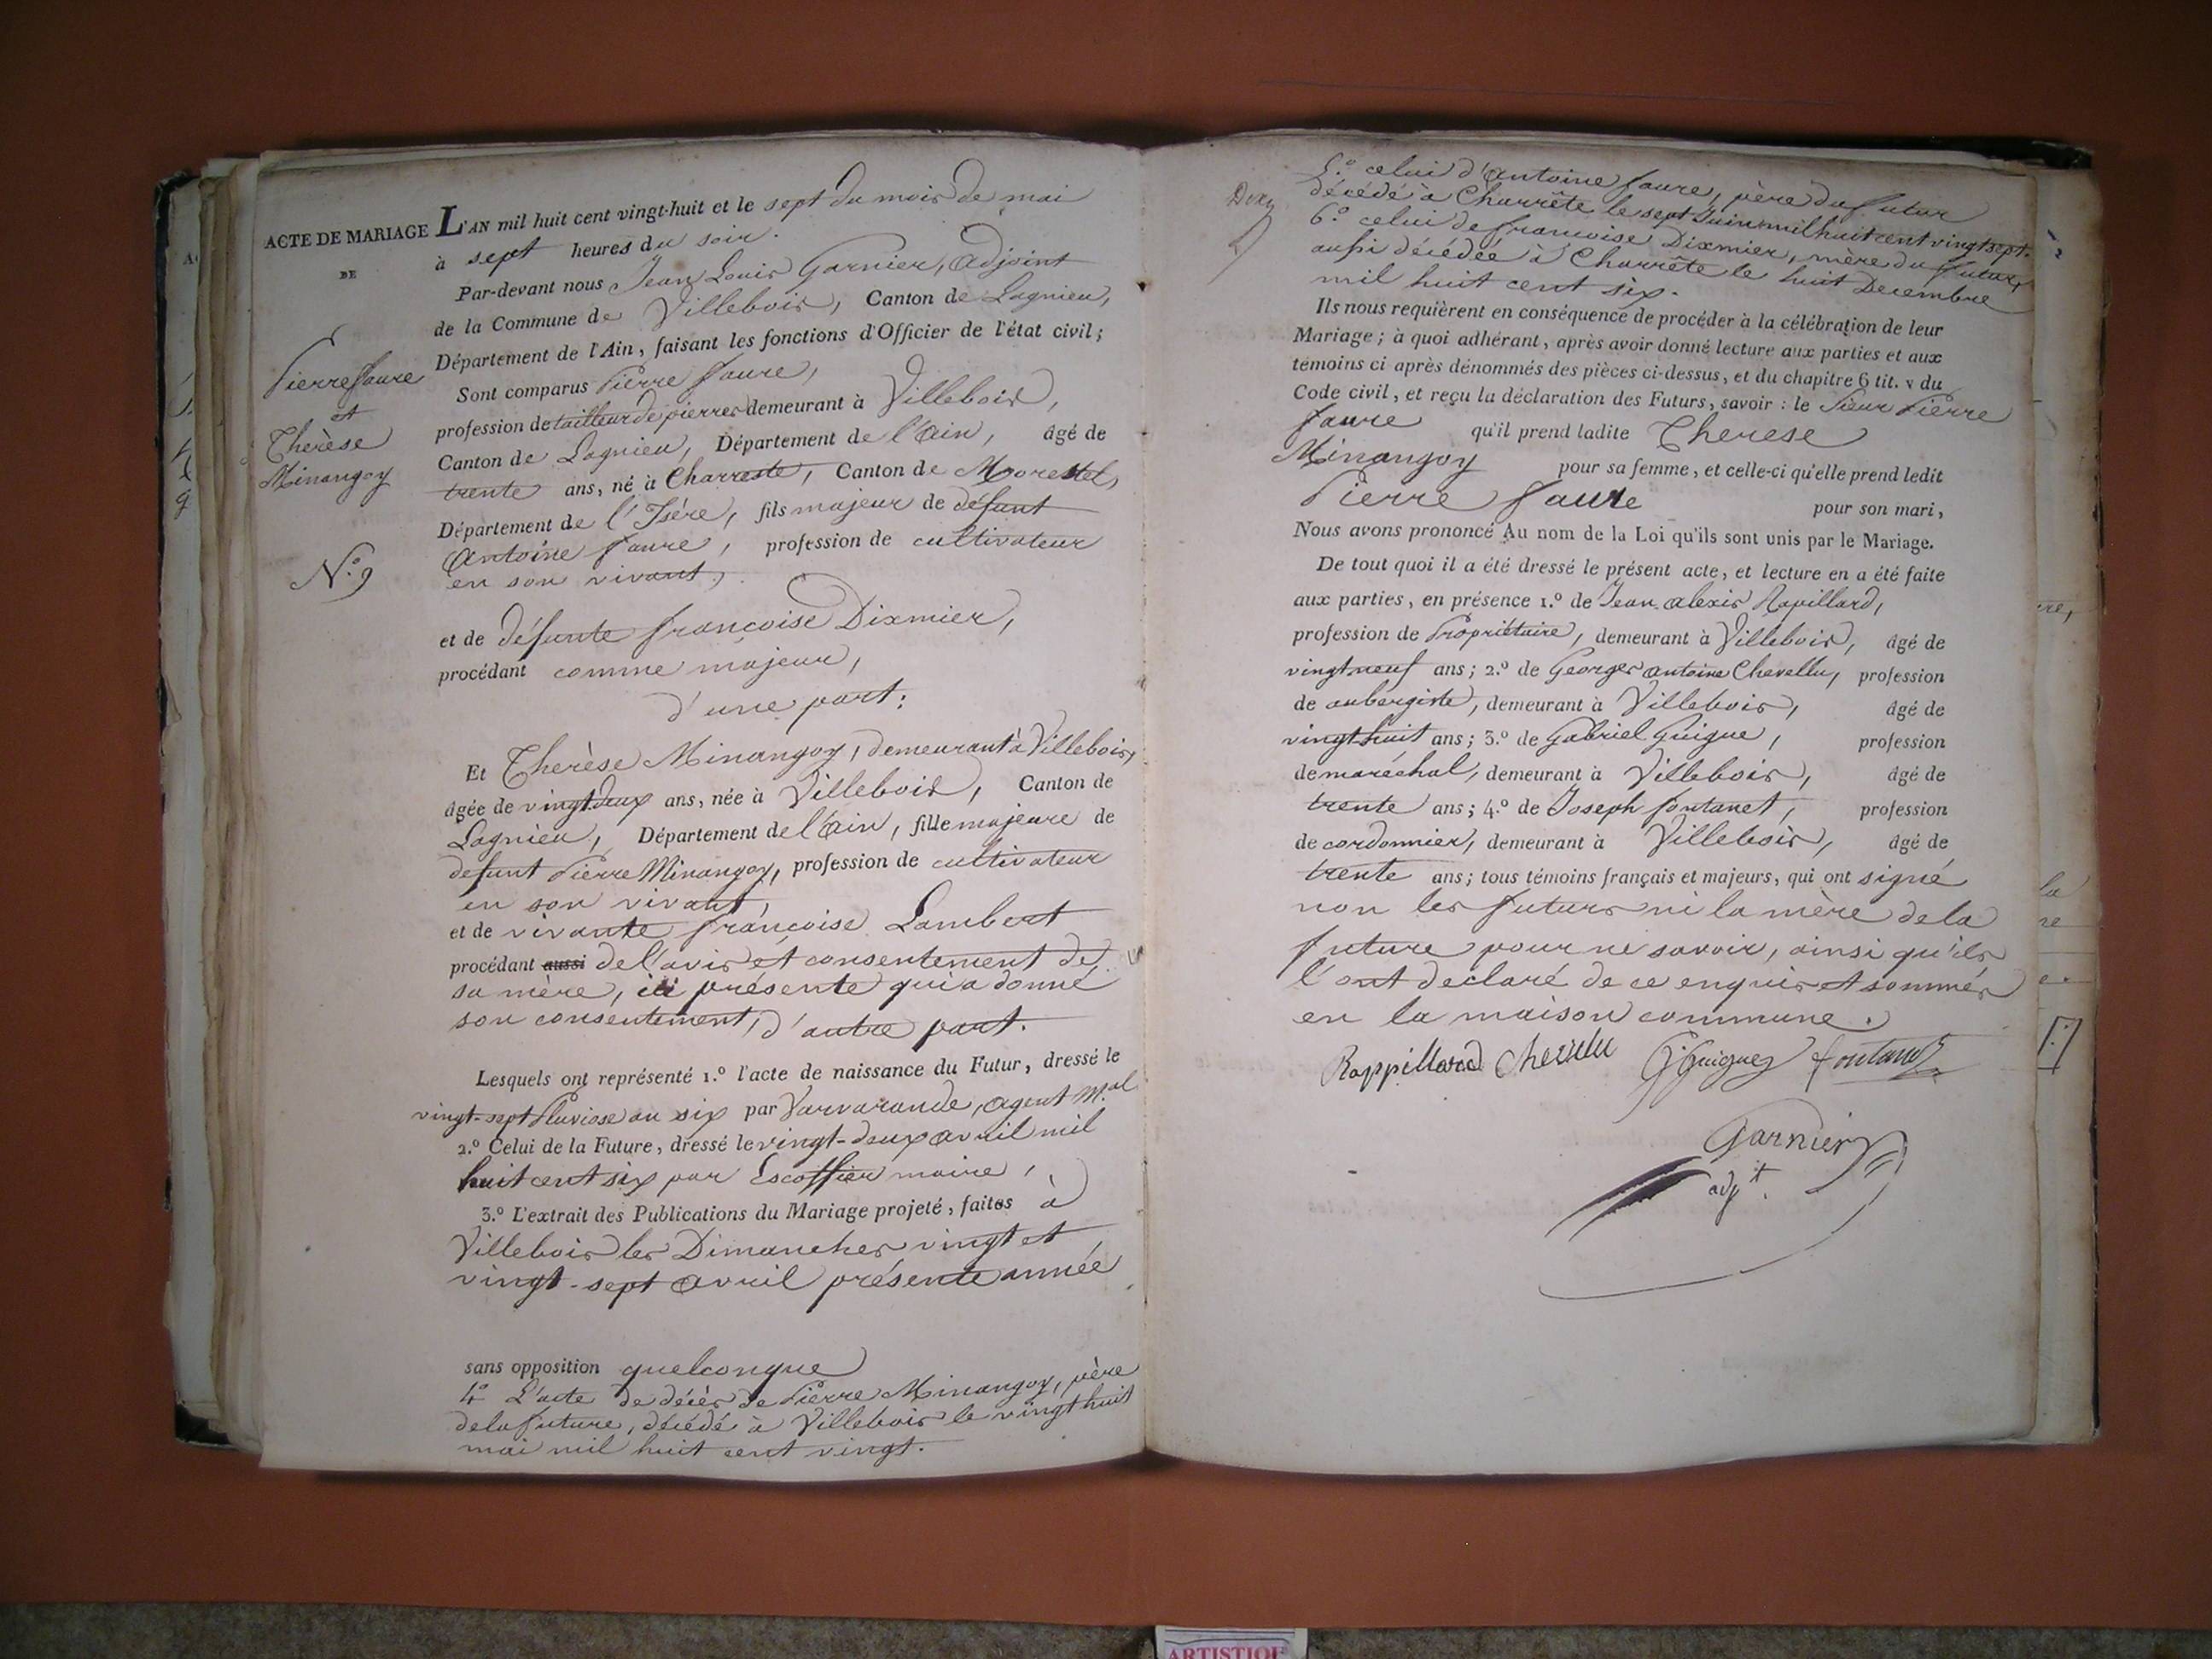 ACTE DE MARIAGE
DE
Pierre faure
et
Thérèse
Minangoy
N.º 9
L'AN mil huit cent vingt-huit et le sept du mois de mai
à sept heures du soir.
Par-devant nous Jean Louis Garnier, adjoint
de la Commune de Villebois, Canton de Lagnieu,
Département de l'Ain, faisant les fonctions d'Officier de l'état civil;
Sont comparus Pierre faure,
profession de tailleur de pierres demeurant à Villebois,
Canton de Lagnieu, Département de l'ain, âgé de
trente ans, né à Charreste, Canton de Morestel,
Département de l'Isére, fils majeur de défunt
Antoine faure, profession de cultivateur
en son vivant,
et de défunte françoise Dixmier,
procédant comme majeur,
d'une part;
Et Thérèse Minangoy, demeurant à Villebois,
âgée de vingt deux ans, née à Villebois, Canton de
Lagnieu, Département de l'ain, fille majeure de
defunt Pierre Minangoy, profession de cultivateur
en son vivant,
et de vivante françoise Lambert
procédant aussi de l'avis et consentement de
sa mère, ici présente qui a donné
son consentement, d'autre part.
Lesquels ont représenté 1.º l'acte de naissance du Futur, dressé le
vingt-sept Pluviose an six par Varvarande, agent M.al
2.º Celui de la Future, dressé le vingt-deux avril mil
huit cent six par Escoffier maire,
3.º L'extrait des Publications du Mariage projeté, faites à
Villebois les Dimanches vingt et
vingt-sept avril présente année
sans opposition quelconque
4º L'acte de décès de Pierre Minangoy, père
de la future, décédé à Villebois le vingt huit
mai mil huit cent vingt.
5.º celui d'Antoine faure, père du futur
décédé à Charrête le sept Juin mil huit cent vingt sept.
6.º celui de francoise Dixmier, mère du futur,
aussi décédée à Charrête le huit Decembre
mil huit cent six.
Ils nous requièrent en conséquence de procéder à la célébration de leur
Mariage; à quoi adhérant, après avoir donné lecture aux parties et aux
témoins ci après dénommés des pièces ci-dessus, et du chapitre 6 tit. v du
Code civil, et reçu la déclaration des Futurs, savoir : le Sieur Pierre
faure qu'il prend ladite Therese
Minangoy pour sa femme, et celle-ci qu'elle prend ledit
Pierre faure pour son mari,
Nous avons prononcé Au nom de la Loi qu'ils sont unis par le Mariage.
De tout quoi il a été dressé le présent acte, et lecture en a été faite
aux parties, en présence 1.º de Jean alexis Rapillard,
profession de Propriétaire, demeurant à Villebois, âgé de
vingt neuf ans; 2.º de Georges antoine Chevellu, profession
de aubergiste, demeurant à Villebois, âgé de
vingt huit ans; 3.º de Gabriel Guigue, profession
de maréchal, demeurant à Villebois, âgé de
trente ans; 4.º de Joseph fontanet, profession
de cordonnier, demeurant à Villebois, âgé de
trente ans; tous témoins français et majeurs, qui ont signé
non les futurs ni la mère de la
future pour ne savoir, ainsi qu'ils
l'ont declaré de ce enquis et sommés
en la maison commune.
Rappillard Chevellu G Guigue fontanet
Garnier
adj.t
ARTISTIQUE